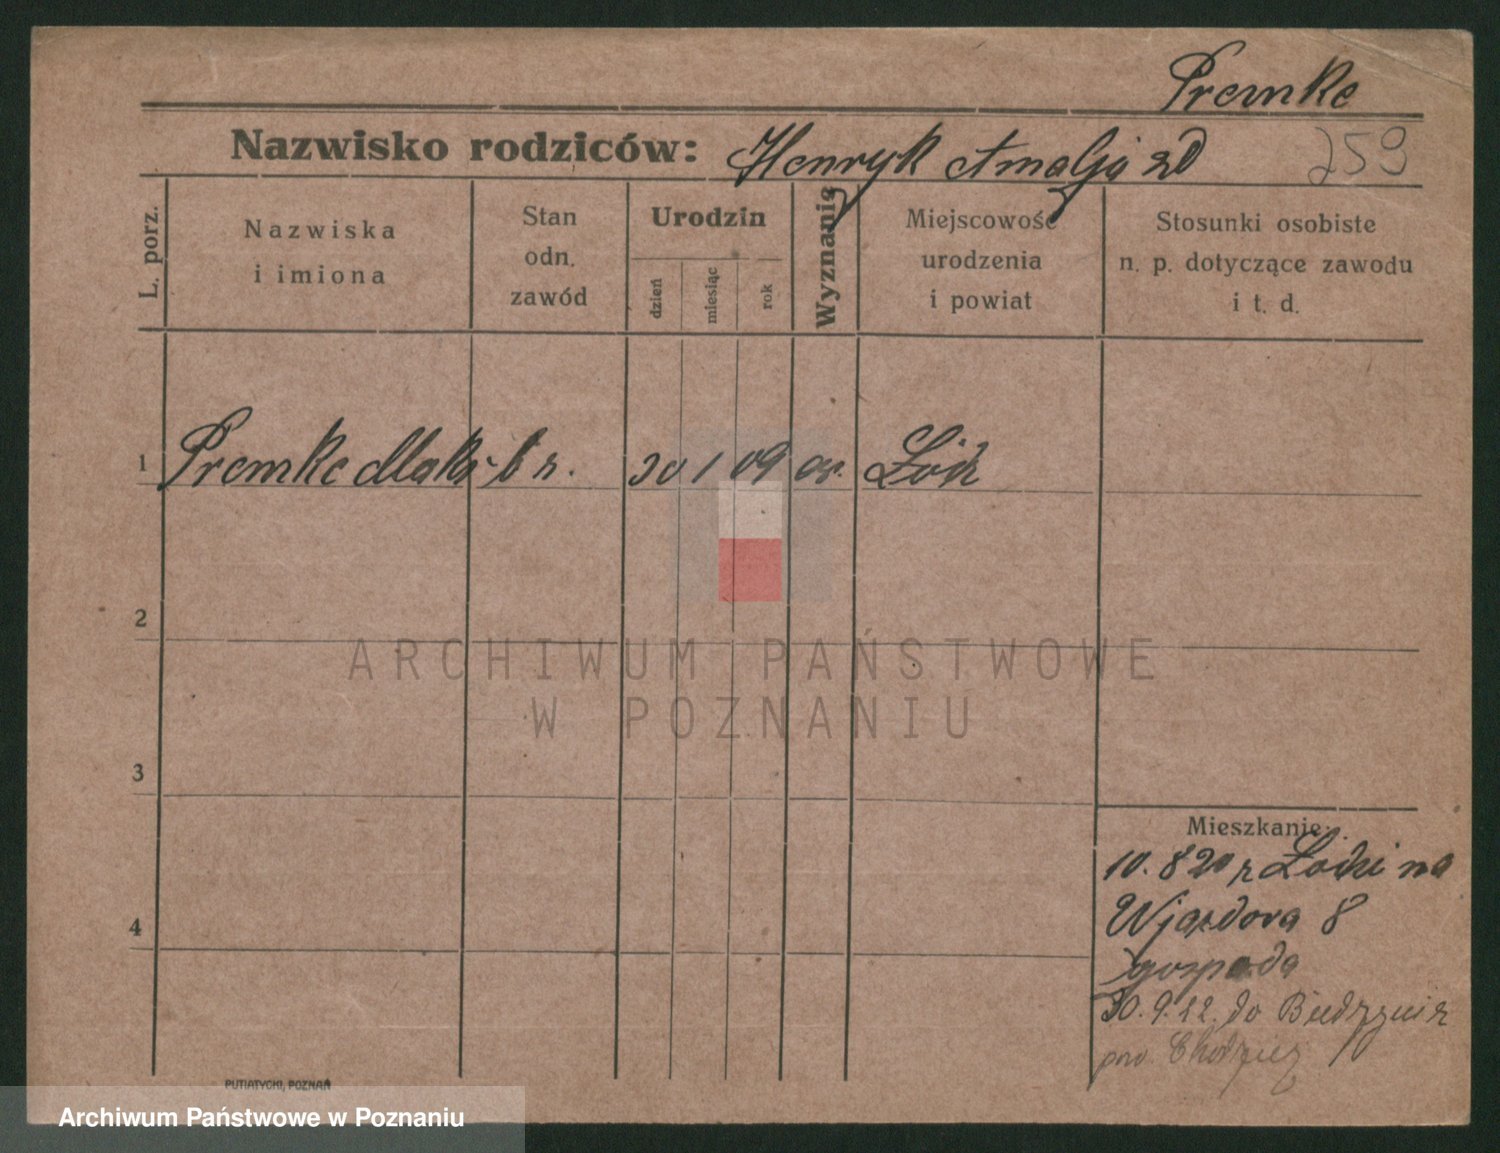 Premke
Nazwisko rodziców: Henryk Amalja zd
259
L. porz.
Nazwiska
i imiona
Stan
odn.
zawód
Urodzin
dzień
miesiąc
rok
Wyznanie
Miejscowość
urodzenia
i powiat
Stosunki osobiste
n. p. dotyczące zawodu
i t. d.
1 Premke Maks br. 30 1 09 Łódź
2
ARCHIWUM PAŃSTWOWE
W POZNANIU
3
Mieszkanie:
10.8 20 z Łodzi na
4
Wjazdowa 8
gospoda
30.9.22. do
pow. Chodzież
PUTIATYCKI, POZNAŃ
Archiwum Państwowe w Poznaniu